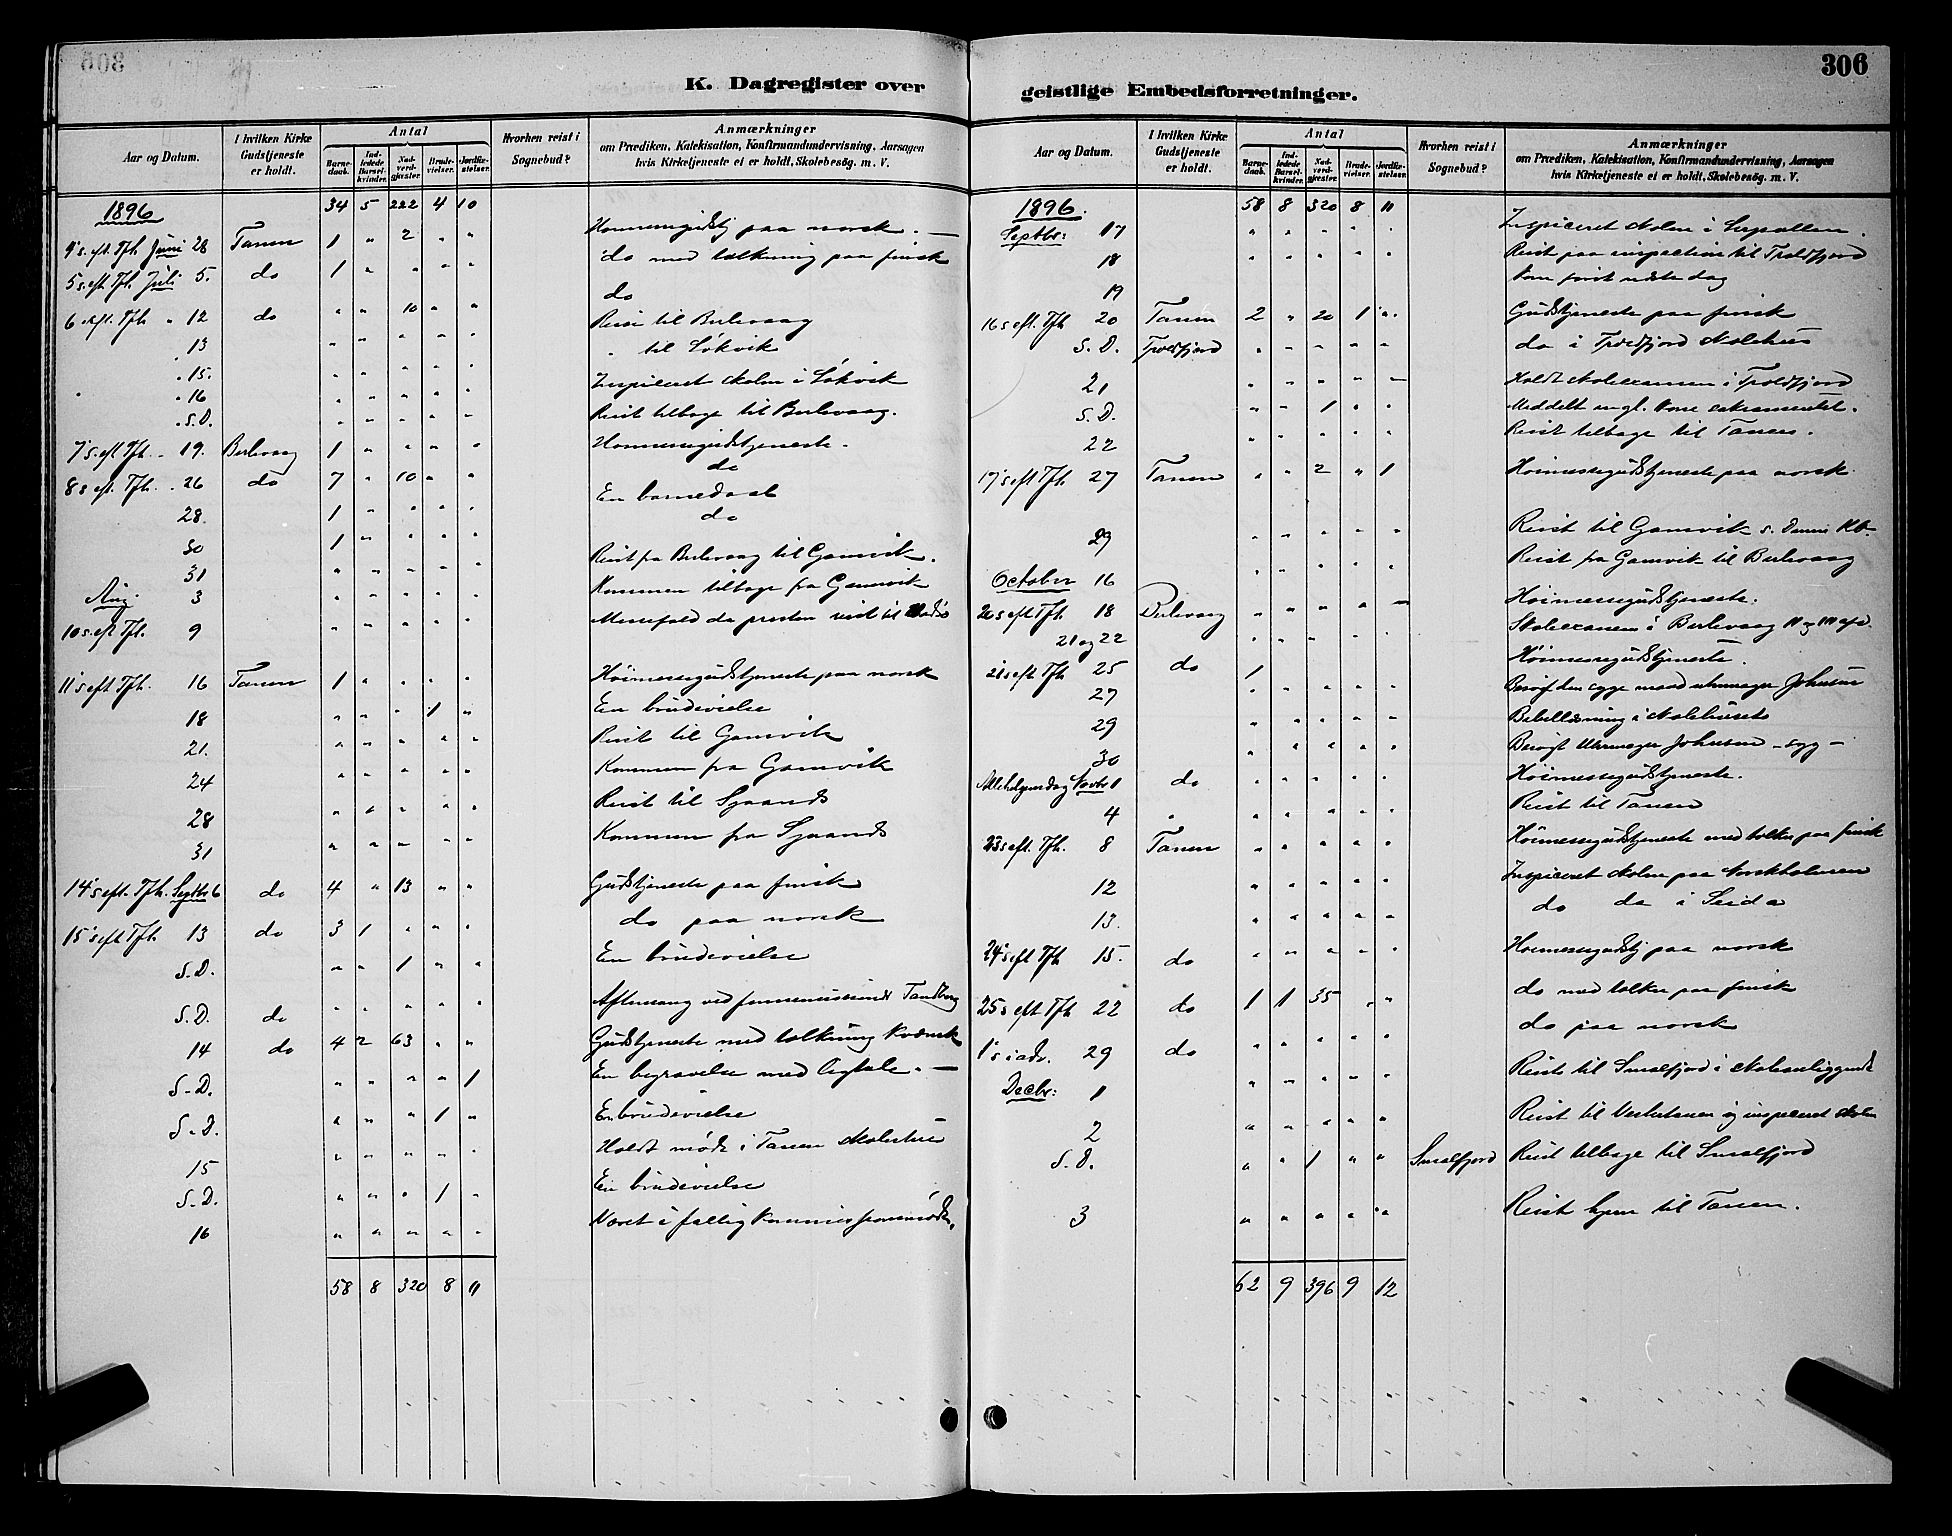 306
K. Dagregister over
geistlige Embedsforretninger.
Aar og Datum. I hvilken Kirke Gudstjeneste er holdt. Antal Barne-daab. Ind-ledede Barsel-kvinder. Nad-verd-gjæster. Brude-vielser. Jordfæ-stelser. Hvorhen reist i Sognebud? Anmærkninger om Prædiken, Katekisation, Konfirmandundervisning, Aarsagen hvis Kirketjeneste ei er holdt, Skolebesøg. m. V.
1896 34 5 222 4 10
4's. eft. Tfh. Juni 28 Tanen 1 " 2 " " paa norsk.
5 s. eft Tfh. Juli 5. do 1 " " " " do med tolkning paa finsk
6 s. eft. Tfh. " 12 do " " 10 " " do
. 13 " " " " " Reise til Berlevaag
. 15. " " " " " " til Løkvik
. 16 " " " " " Inspiceret skolen i Løkvik
. S.D. " " " " " Reist tilbage til Berlevaag.
7's. eft Tfh. . 19. Berlevaag 1 " " " "
8 s eft. Tfh. . 26 do 7 " 10 " " do
28. 1 " " " " En barnedaab
30 1 " " " " do
31 " " " " " Reist fra Berlevaag til Gamvik.
Aug. 3 " " " " " Kommen tilbage fra Gamvik
10 s. eft Tfh. 9 " " " " " Messefald da presten reist til
11's eft Tfh. 16 Tanen 1 " " " " Høimessegudstjeneste paa norsk
18 " " " 1 " En brudevielse
21. " " " " " Reist til Gamvik
24 " " " " " Kommen fra Gamvik
28 " " " " " Reist til
31 " " " " " Kommen fra
14's eft. Tfh. Septbr 6 do 4 " 13 " " Gudstjeneste paa finsk
15's eft Tfh. 13 do 3 1 " " " do paa norsk
S.D. " " 1 " " En brudevielse
S.D. do " " " " " Aftensang ved Tandberg
14 do 4 2 63 " " Gudstjeneste med tolkning kvænsk
S.D. " " " " 1 En begravelse med ligtale.
S.D. " " " 1 " En brudevielse
15 " " " " " Holdt møde i Tanen skolestue
S.D. " " " 1 " En brudevielse
16 " " " " " Været i fattigkommissionsmøde.
58 8 320 8 11
Aar og Datum. I hvilken Kirke Gudstjeneste er holdt. Antal Barne-daab. Ind-ledede Barsel-kvinder. Nad-verd-gjæster. Brude-vielser. Jordfæ-stelser. Hvorhen reist i Sognebud? Anmærkninger om Prædiken, Katekisation, Konfirmandundervisning, Aarsagen hvis Kirketjeneste ei er holdt, Skolebesøg. m. V.
1896. 58 8 320 8 11
Septbr: 17 " " " " " Inspiceret skolen i
18 " " " " " Reist paa inspection til Troldfjord
19 Kom først næste dag
16 s eft. Tfh 20 Tanen 2 " 20 1 " Gudstjeneste paa finsk
S.D. Troldfjord " " " " " do i Troldfjord skolehus
21 " " " " " Holdt skoleexamen i Troldfjord
S.D. " " 1 " " Meddelt en gl. kone sakramentet.
22 " " " " " Reist tilbage til Tanen.
17's eft Tfh. 27 Tanen " " 2 " 1 Høimessegudstjeneste paa norsk.
29 " " " " " Reist til Gamvik s.
October 16 " " " " " Reist fra Gamvik til Berlevaag
20 s eft Tfh. 18 Berlevaag " " " " " Høimessegudstjeneste.
21 og 22 " " " " " Skoleexamen i Berlevaag
21 s eft Tfh. 25 do 1 Høimessegudstjeneste.
27 " " " " " Besøgt den syge mand urmager Johnsen
29 " " " " " Bibellæsning i skolehuset
30 " " " " " Besøgt Urmager Johnsen - syg -
Allehelgensdag Novbr 1 do " " " " Høimessegudstjeneste.
4 " " " " " " Reist til Tanen
23 s eft. Tfh. 8 Tanen " " " " " Høimessegudstjeneste med tolker paa finsk
12 " " " " " Inspiceret skolen paa Norskholmen
13. " " " " " do do i Seida
24's eft Tfh 15. do " " " " " Høimessegudstj paa norsk
25 s eft Tfh 22 do 1 1 35 " " do med tolker paa finsk
1's i adv. 29 do " " " " " do paa norsk
Decbr: 1 " " " " " Reist til Smalfjord i skoleanliggende
2 " " " " " Reist til Vestertanen og inspiceret skolen
S.D. " " 1 " " Smalfjord Reist tilbage til Smalfjord
3 " " " " " Reist hjem til Tanen.
62 9 396 9 12